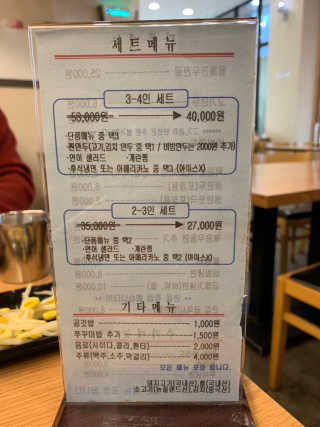 세트메뉴
3-4인 세트
50,000원 40,000원
·단품메뉴 중 택3
·찐만두(고기,김치 만두 중 택1 / 비빔만두는 2000원 추가)
·연어 샐러드 ·계란찜
·후식냉면 또는 아메리카노 중 택3 (아이스X)
2-3인 세트
35,000원 27,000원
·단품메뉴 중 택2
·연어 샐러드 ·계란찜
·후식냉면 또는 아메리카노 중 택2 (아이스X)
기타메뉴
공깃밥 1,000원
쭈꾸미밥 추가 1,500원
음료(사이다,콜라,환타) 2,000원
주류(맥주,소주,막걸리) 4,000원
모든 메뉴 포장 됩니다.